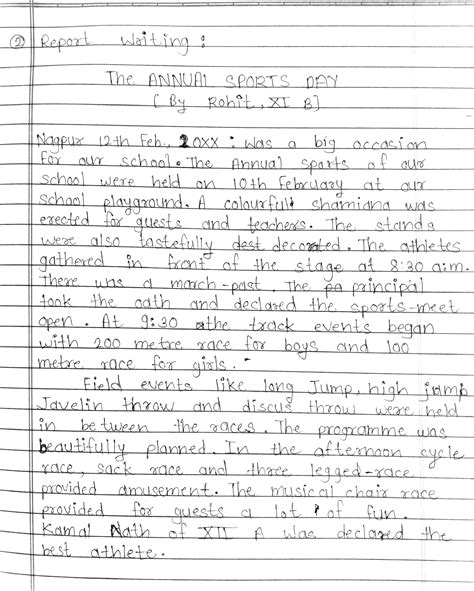 ② Report Writing :
The ANNUAL SPORTS DAY
[ By Rohit, XI B]
Nagpur 12th Feb., 20XX : Was a big occasion
For our school. The Annual sports of our
school were held on 10th February at our
school playground. A colourful shamiana was
erected for guests and teachers. The stands
were also tastefully dest decorated. The athletes
gathered in front of the stage at 8:30 a.m.
There was a march-past. The pa principal
took the oath and declared the sports-meet
open. At 9:30 the track events began
with 200 metre race for boys and 100
metre race for girls.
Field events like long Jump, high jump
Javelin throw and discus throw were held
in between the races. The programme was
beautifully planned. In the afternoon cycle
race, sack race and three legged-race
provided amusement. The musical chair race
provided for guests a lot of fun.
Kamal Nath of XII A was declared the
best athlete.